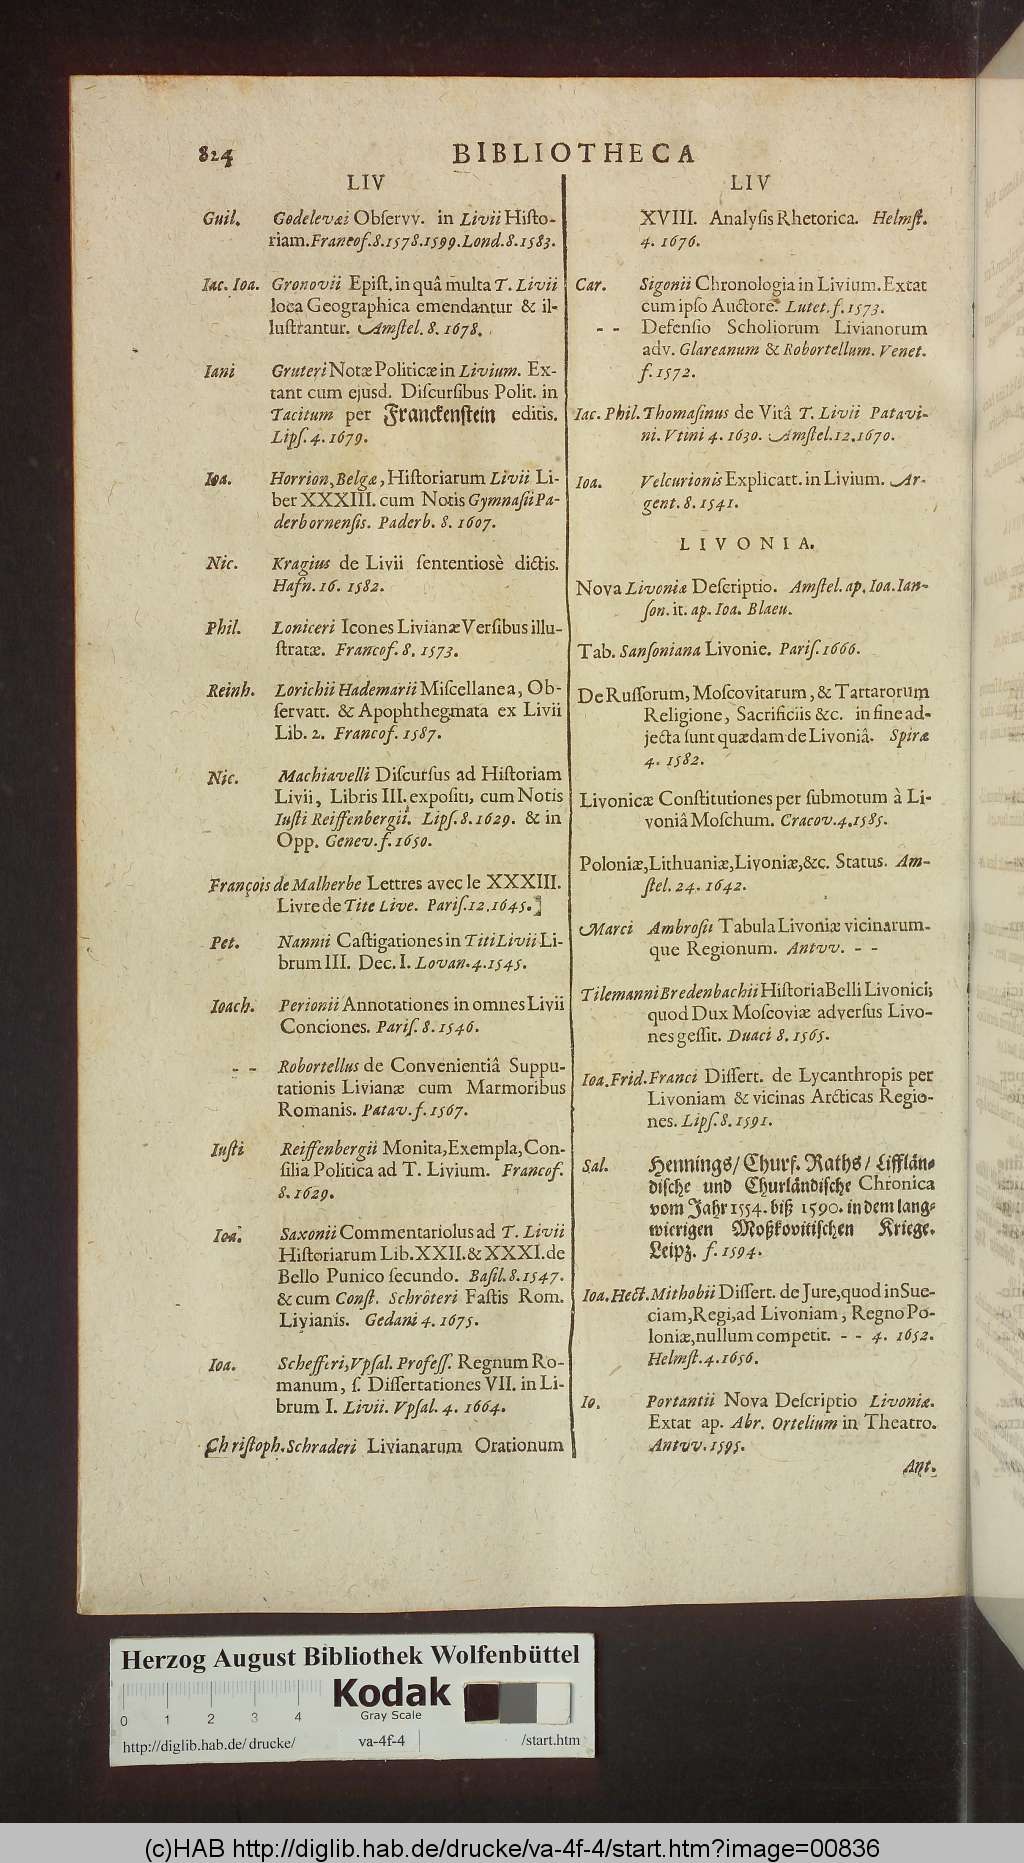 824
BIBLIOTHECA
LIV
Guil. Godelevæi Obſervv. in Livii Hiſto-
riam. Francof. 8. 1578. 1599. Lond. 8. 1583.
Iac. Ioa. Gronovii Epiſt. in quâ multa T. Livii
loca Geographica emendantur & il-
luſtrantur. Amſtel. 8. 1678.
Iani Gruteri Notæ Politicæ in Livium. Ex-
tant cum ejusd. Diſcurſibus Polit. in
Tacitum per Franckenſtein editis.
Lipſ. 4. 1679.
Ioa. Horrion, Belgæ, Hiſtoriarum Livii Li-
ber XXXIII. cum Notis Gymnaſii Pa-
derbornenſis. Paderb. 8. 1607.
Nic. Kragius de Livii ſententiosè dictis.
Hafn. 16. 1582.
Phil. Loniceri Icones Livianæ Verſibus illu-
ſtratæ. Francof. 8. 1573.
Reinh. Lorichii Hademarii Miſcellanea, Ob-
ſervatt. & Apophthegmata ex Livii
Lib. 2. Francof. 1587.
Nic. Machiavelli Diſcurſus ad Hiſtoriam
Livii, Libris III. expoſiti, cum Notis
Iuſti Reiffenbergii. Lipſ. 8. 1629. & in
Opp. Genev. f. 1650.
François de Malherbe Lettres avec le XXXIII.
Livre de Tite Live. Pariſ. 12. 1645.
Pet. Nannii Caſtigationes in Titi Livii Li-
brum III. Dec. I. Lovan. 4. 1545.
Ioach. Perionii Annotationes in omnes Livii
Conciones. Pariſ. 8. 1546.
- - Robortellus de Convenientiâ Suppu-
tationis Livianæ cum Marmoribus
Romanis. Patav. f. 1567.
Iuſti Reiffenbergii Monita, Exempla, Con-
ſilia Politica ad T. Livium. Francof.
8. 1629.
Ioa. Saxonii Commentariolus ad T. Livii
Hiſtoriarum Lib. XXII. & XXXI. de
Bello Punico ſecundo. Baſil. 8. 1547.
& cum Conſt. Schröteri Faſtis Rom.
Livianis. Gedani 4. 1675.
Ioa. Schefferi, Vpſal. Profeſſ. Regnum Ro-
manum, ſ. Diſſertationes VII. in Li-
brum I. Livii. Vpſal. 4. 1664.
Chriſtoph. Schraderi Livianarum Orationum
LIV
XVIII. Analyſis Rhetorica. Helmſt.
4. 1676.
Car. Sigonii Chronologia in Livium. Extat
cum ipſo Auctore. Lutet. f. 1573.
- - Defenſio Scholiorum Livianorum
adv. Glareanum & Robortellum. Venet.
f. 1572.
Iac. Phil. Thomaſinus de Vitâ T. Livii Patavi-
ni. Vtini 4. 1630. Amſtel. 12. 1670.
Ioa. Velcurionis Explicatt. in Livium. Ar-
gent. 8. 1541.
LIVONIA.
Nova Livoniæ Deſcriptio. Amſtel. ap. Ioa. Ian-
ſon. it. ap. Ioa. Blaeu.
Tab. Sanſoniana Livonie. Pariſ. 1666.
De Ruſſorum, Moſcovitarum, & Tartarorum
Religione, Sacrificiis &c. in fine ad-
jecta ſunt quædam de Livoniâ. Spiræ
4. 1582.
Livonicæ Conſtitutiones per ſubmotum à Li-
voniâ Moſchum. Cracov. 4. 1585.
Poloniæ, Lithuaniæ, Livoniæ, &c. Status. Am-
ſtel. 24. 1642.
Marci Ambroſii Tabula Livoniæ vicinarum-
que Regionum. Antvv. - -
Tilemanni Bredenbachii Hiſtoria Belli Livonici,
quod Dux Moſcoviæ adverſus Livo-
nes geſſit. Duaci 8. 1565.
Ioa. Frid. Franci Diſſert. de Lycanthropis per
Livoniam & vicinas Arcticas Regio-
nes. Lipſ. 8. 1591.
Sal. Hennings/ Churf. Raths/ Lifflän-
diſche und Churländiſche Chronica
vom Jahr 1554. biß 1590. in dem lang-
wierigen Moßkovitiſchen Kriege.
Leipz. f. 1594.
Ioa. Hect. Mithobii Diſſert. de Jure, quod in Sue-
ciam, Regi, ad Livoniam, Regno Po-
loniæ, nullum competit. - - 4. 1652.
Helmſt. 4. 1656.
Io. Portantii Nova Deſcriptio Livoniæ.
Extat ap. Abr. Ortelium in Theatro.
Antvv. 1595.
Ant.
Herzog August Bibliothek Wolfenbüttel
Kodak
Gray Scale
0 1 2 3 4
http://diglib.hab.de/drucke/ va-4f-4 /start.htm
(c)HAB http://diglib.hab.de/drucke/va-4f-4/start.htm?image=00836